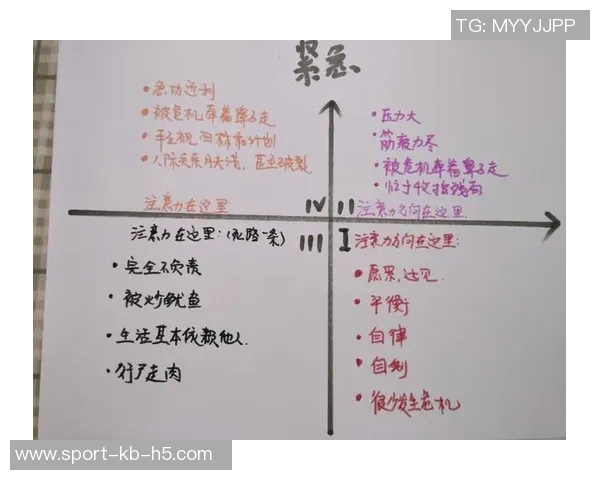 TG: MYYJJPP
紧急
•急功近利
•被危机牵着鼻子走
•轻视目标和计划
•人际关系肤浅，甚至破裂
注意力在这里
IV
•压力大
筋疲力尽
•被危机牵着鼻子走
•忙于收拾残局
II
注意力方向在这里.
注意力在这里:(死路一条)
III
•完全不负责
•被炒鱿鱼
•生活基本依赖他人.
•行尸走肉
I
注意力方向在这里:
•愿景,远见.
•平衡
•自律
•自制
•很少发生危机
www.sport-kb-h5.com